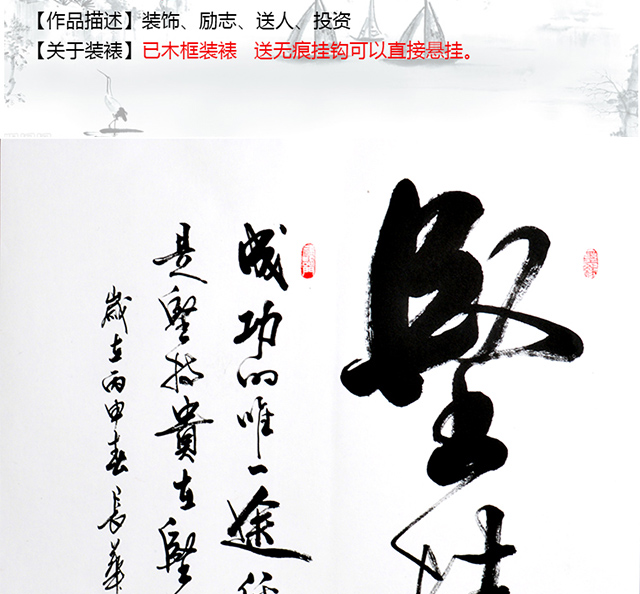 【作品描述】装饰、励志、送人、投资
【关于装裱】已木框装裱 送无痕挂钩可以直接悬挂。
堅持
成功的唯一途徑
是堅持貴在堅
歲在丙申春長華